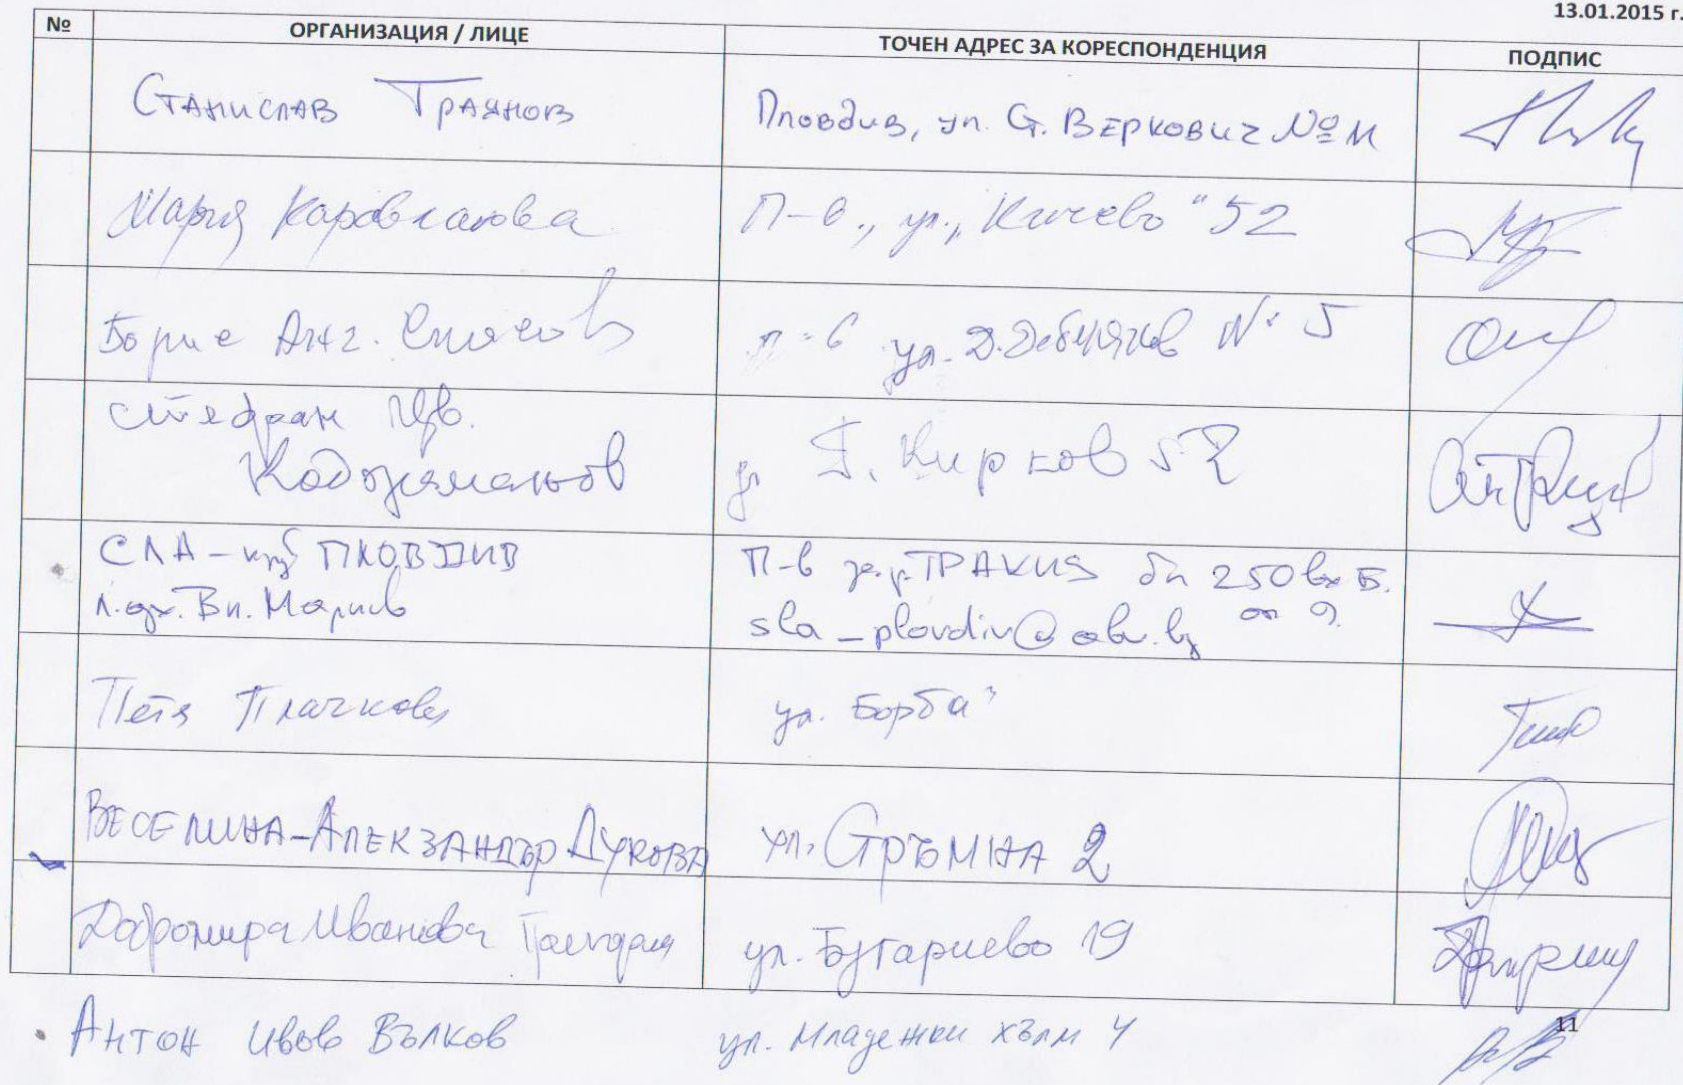 13.01.2015 г.
№ ОРГАНИЗАЦИЯ / ЛИЦЕ ТОЧЕН АДРЕС ЗА КОРЕСПОНДЕНЦИЯ ПОДПИС
СТАНИСЛАВ ТРАЯНОВ Пловдив, ул. Ст. ВЕРКОВИЧ № 11
Мария П-в., ул. „Кичево" 52
Борис Анг. п-в ул. Д. Дебелянов № 5
Стефан Цв.
Коджаманов ул. Г. Кирков 52
СЛА - клуб ПЛОВДИВ П-в ж.р. ТРАКИЯ бл 250 вх Б.
Вл. Марков sla_plovdiv@abv.bg ап 9.
Петя Плачкова ул. Борба"
ВЕСЕЛИНА-АЛЕКЗАНДЪР ДУКОВА УЛ. СТРЪМНА 2
Добромира Иванова ул. Бугариево 19
11
АНТОН Ивов Вълков ул. Младежки хълм 4